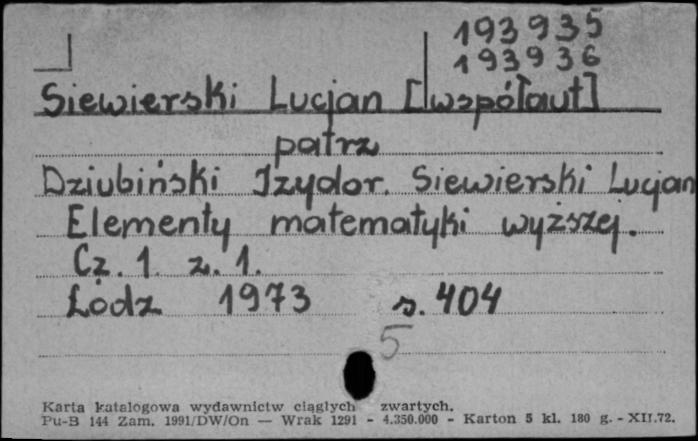 193935
193936
Siewierski Lucjan [współaut]
patrz
Dziubiński Izydor. Siewierski Lucjan
Elementy matematyki wyższej.
Cz. 1. z. 1.
Łódz 1973 s. 404
5
Karta katalogowa wydawnictw ciągłych zwartych.
Pu-B 144 Zam. 1991/DW/On — Wrak 1291 - 4.350.000 - Karton 5 kl. 180 g. - XII.72.